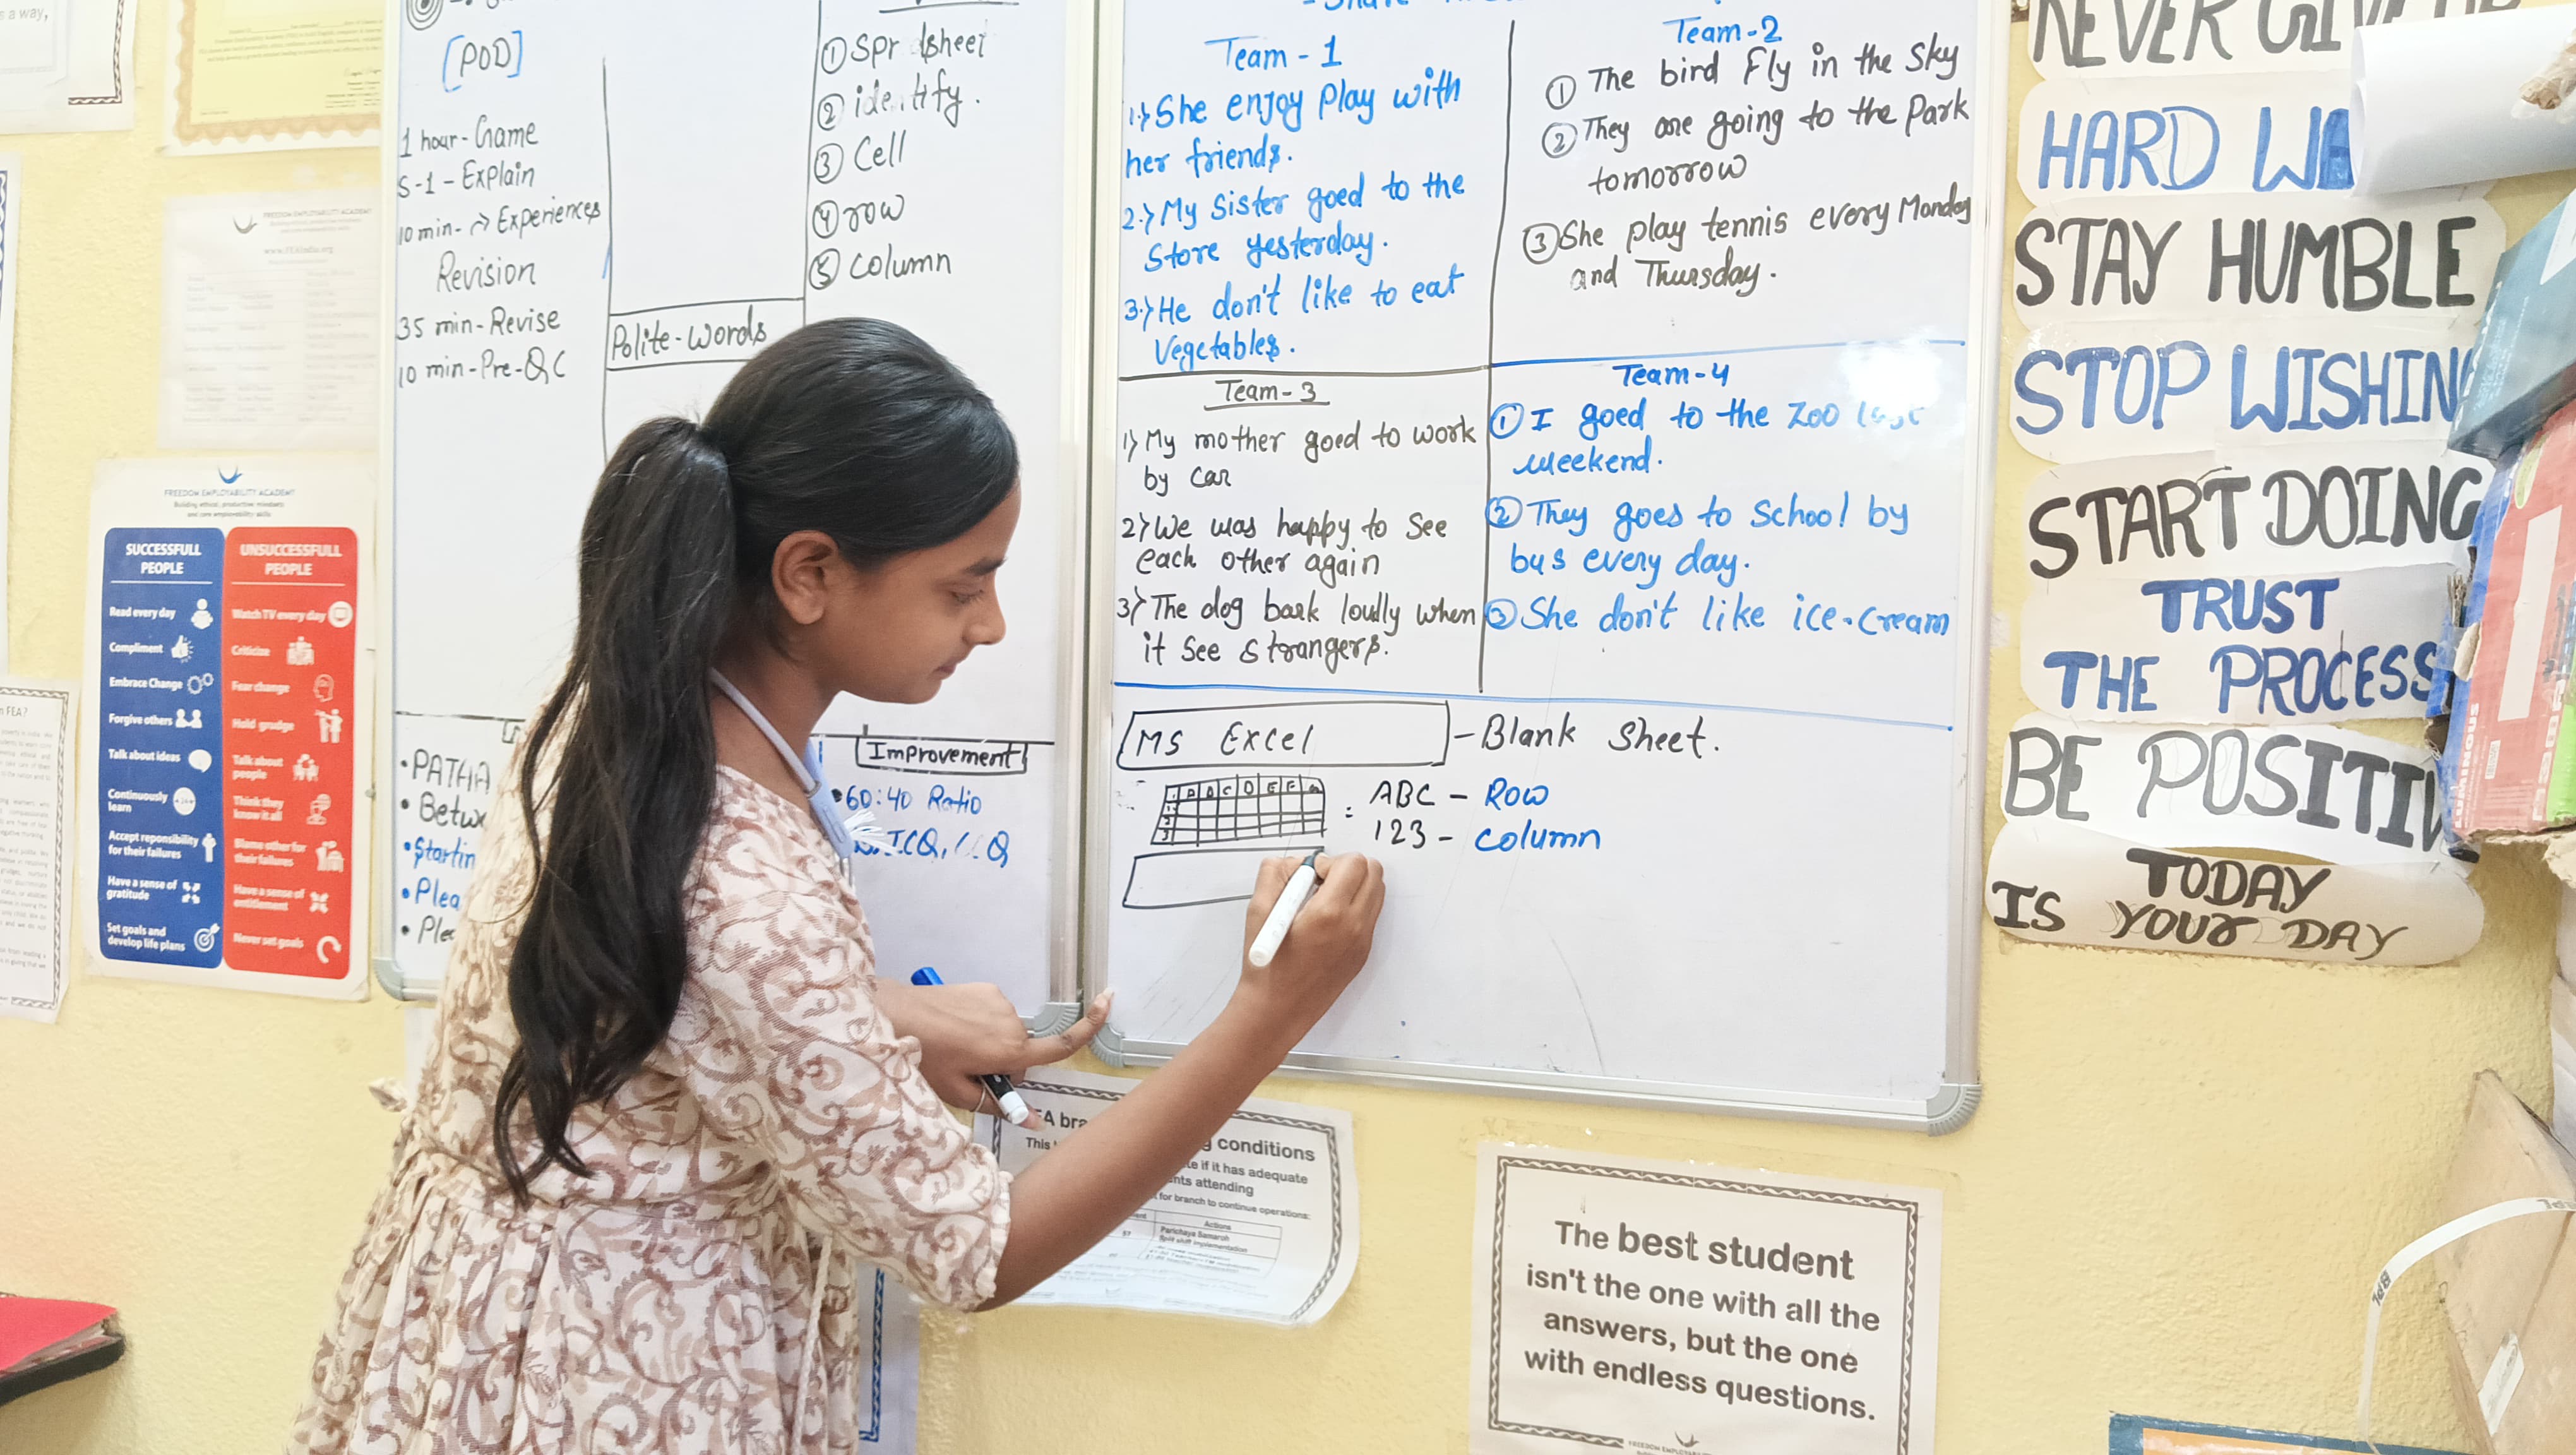 s a way,
[POD]
1 hour-Game
S-1-Explain
10 min-→Experiences
Revision
35 min-Revise
10 min-Pre-QC
Polite-words
① Spr dsheet
② identify.
③ Cell
④ row
⑤ column
•PATHA
• Betw
•Startin
•Plea
•Plea
Improvement
•60:40 Ratio
Team-1
1.) She enjoy Play with
her friends.
2.) My Sister goed to the
Store yesterday.
3.) He don't like to eat
Vegetables.
Team-2
① The bird Fly in the Sky
② They are going to the Park
tomorrow
③ She play tennis every Monday
and Thursday.
Team-3
1) My mother goed to work
by car
2) We was happy to See
each other again
3) The dog bark loudly when
it See strangers.
Team-4
① I goed to the Zoo last
weekend.
② They goes to School by
bus every day.
③ She don't like ice-cream
MS Excel -Blank Sheet.
: ABC - Row
123 - column
NEVER GIVE UP
HARD W
STAY HUMBLE
STOP WISHIN
START DOING
TRUST
THE PROCESS
BE POSITIV
TODAY
IS YOUR DAY
FREEDOM EMPLOYABILITY ACADEMY
www.FEAIndia.org
FREEDOM EMPLOYABILITY ACADEMY
Building ethical, productive mindsets
and core employability skills
SUCCESSFULL
PEOPLE
Read every day
Compliment
Embrace Change
Forgive others
Talk about ideas
Continuously
learn
Accept reponsibility
for their failures
Have a sense of
gratitude
Set goals and
develop life plans
UNSUCCESSFULL
PEOPLE
Watch TV every day
Criticize
Fear change
Hold grudge
Talk about
people
Think they
know it all
Blame other for
their failures
Have a sense of
entitlement
Never set goals
n FEA?
EA bra
g conditions
This
te if it has adequate
nts attending
for branch to continue operations:
Actions
Parichaya Samaroh
Split shift implementation
The best student
isn't the one with all the
answers, but the one
with endless questions.